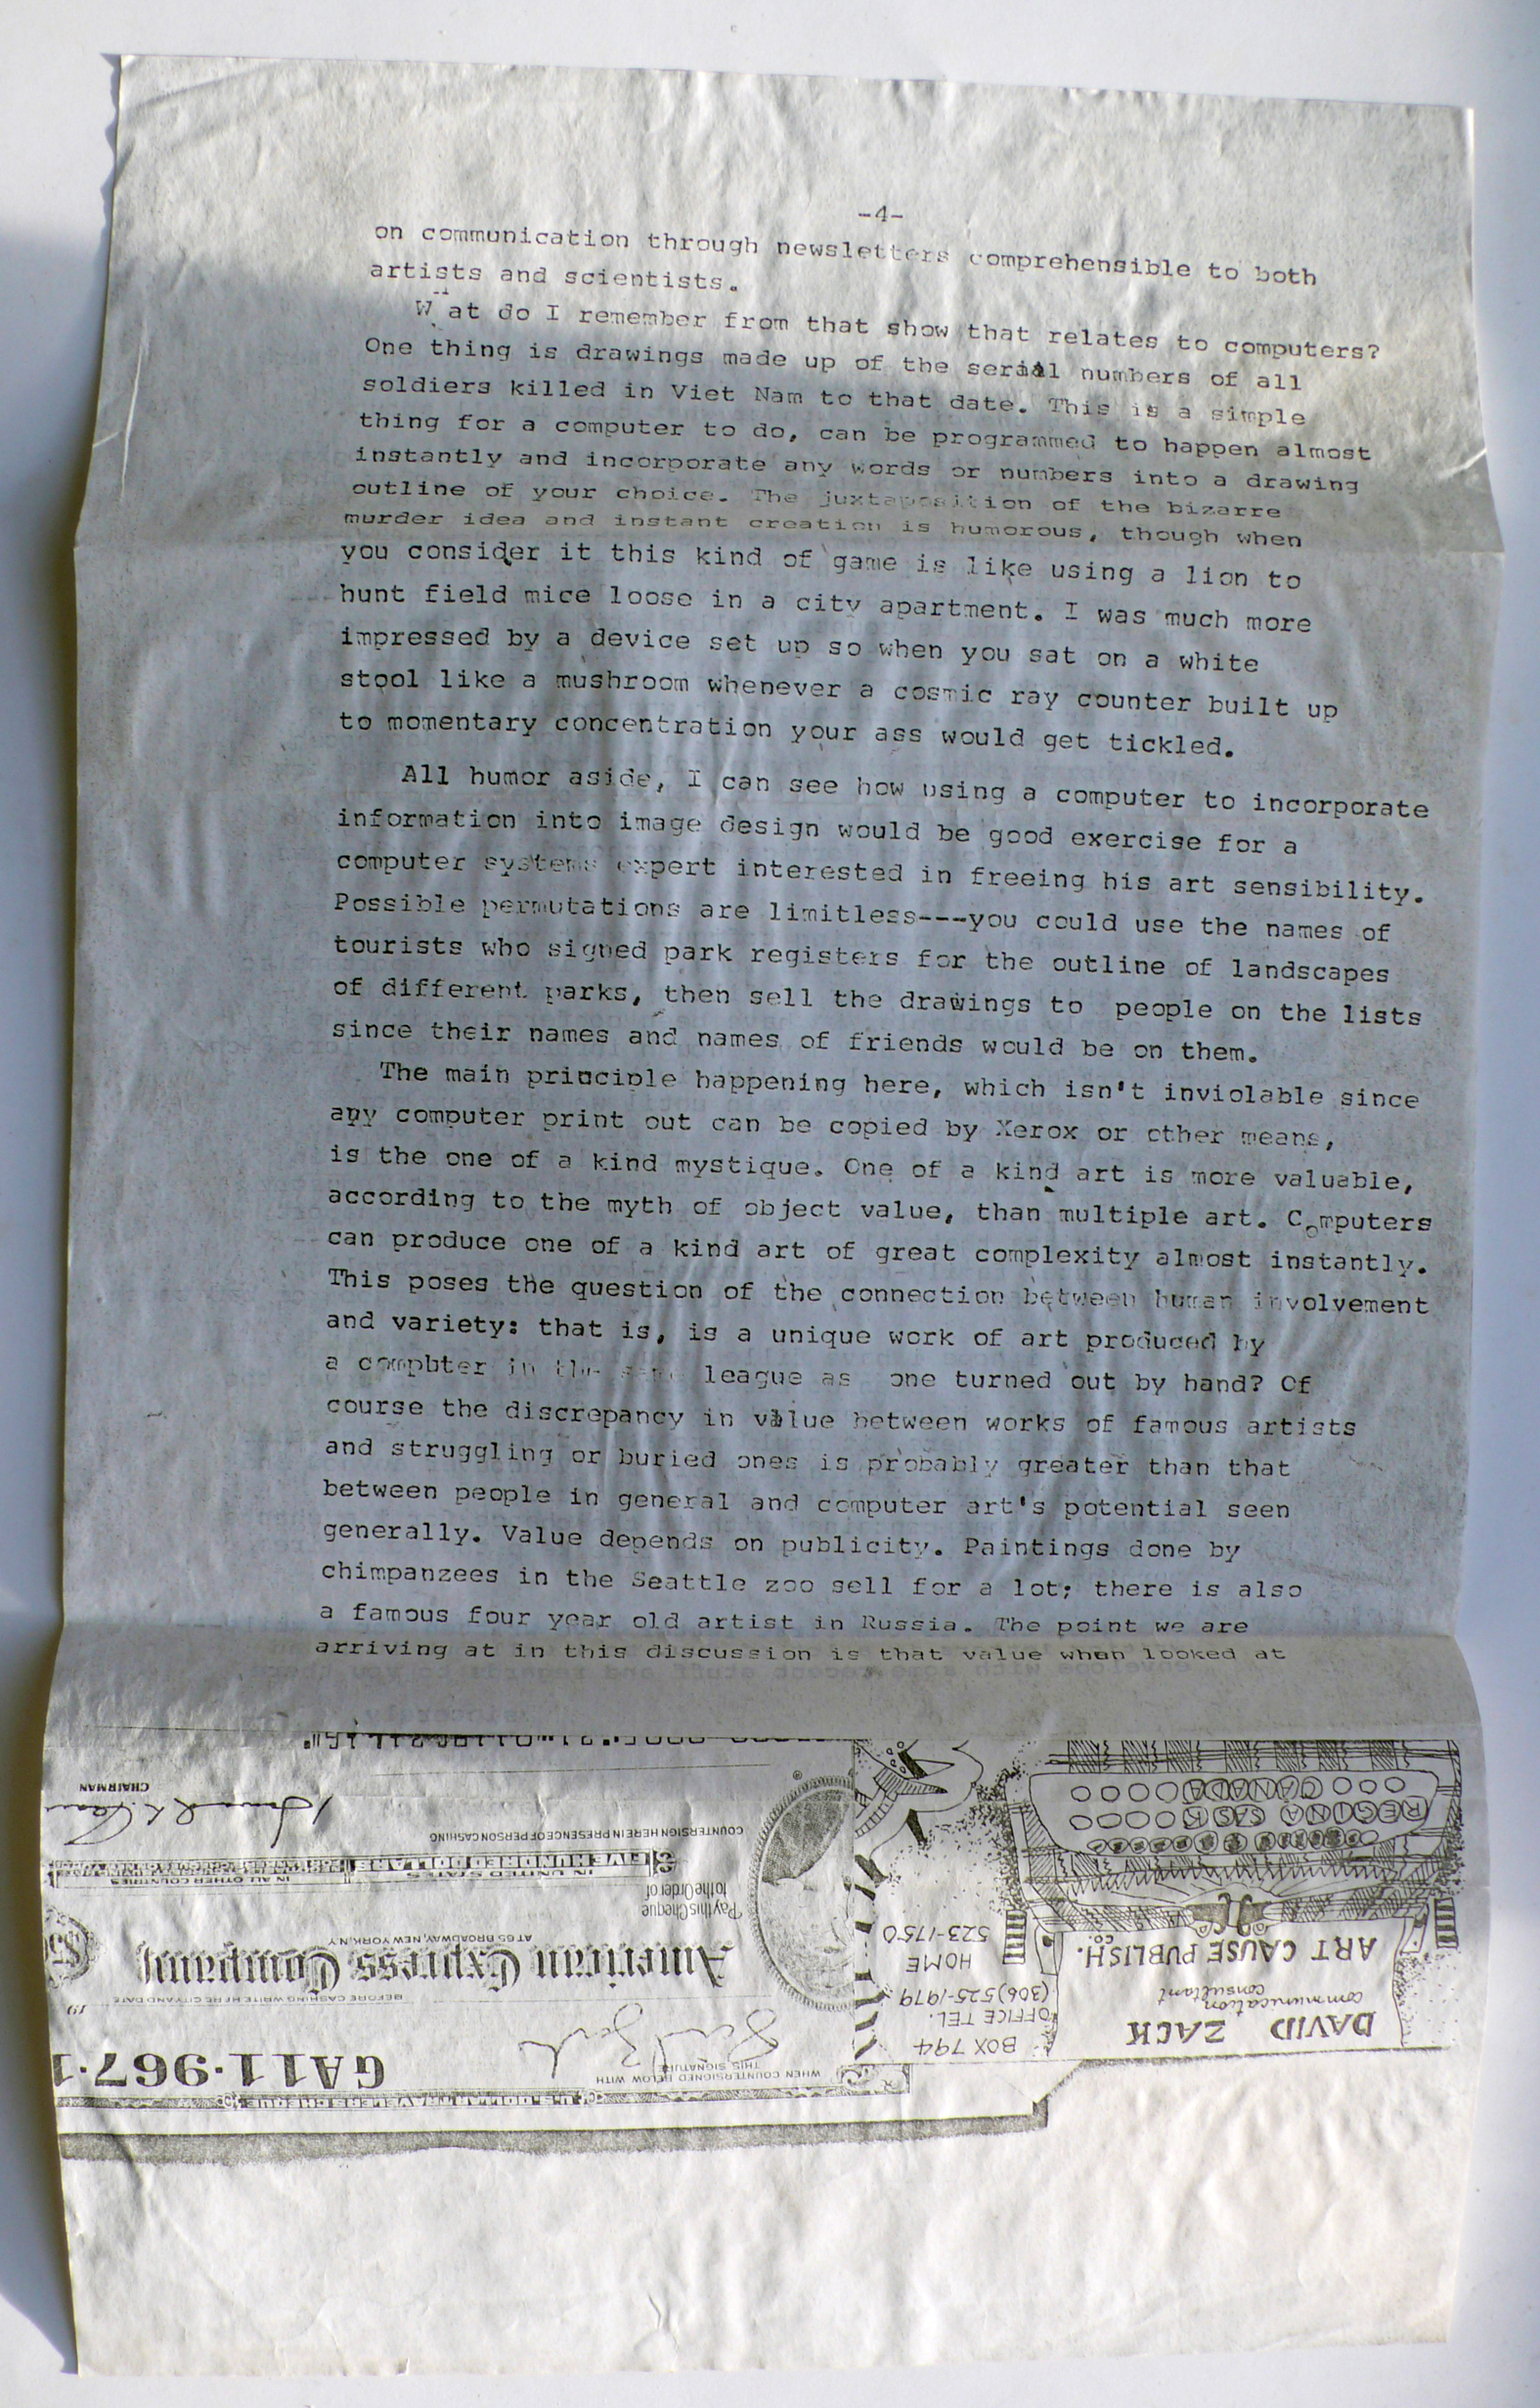 -4-
on communication through newsletters comprehensible to both
artists and scientists.
What do I remember from that show that relates to computers?
One thing is drawings made up of the serial numbers of all
soldiers killed in Viet Nam to that date. This is a simple
thing for a computer to do, can be programmed to happen almost
instantly and incorporate any words or numbers into a drawing
outline of your choice. The juxtaposition of the bizarre
murder idea and instant creation is humorous, though when
you consider it this kind of game is like using a lion to
hunt field mice loose in a city apartment. I was much more
impressed by a device set up so when you sat on a white
stool like a mushroom whenever a cosmic ray counter built up
to momentary concentration your ass would get tickled.
All humor aside, I can see how using a computer to incorporate
information into image design would be good exercise for a
computer systems expert interested in freeing his art sensibility.
Possible permutations are limitless---you could use the names of
tourists who signed park registers for the outline of landscapes
of different parks, then sell the drawings to people on the lists
since their names and names of friends would be on them.
The main principle happening here, which isn't inviolable since
any computer print out can be copied by Xerox or other means,
is the one of a kind mystique. One of a kind art is more valuable,
according to the myth of object value, than multiple art. Computers
can produce one of a kind art of great complexity almost instantly.
This poses the question of the connection between human involvement
and variety: that is, is a unique work of art produced by
a compbter in the same league as one turned out by hand? Of
course the discrepancy in value between works of famous artists
and struggling or buried ones is probably greater than that
between people in general and computer art's potential seen
generally. Value depends on publicity. Paintings done by
chimpanzees in the Seattle zoo sell for a lot; there is also
a famous four year old artist in Russia. The point we are
arriving at in this discussion is that value when looked at
U.S. DOLLAR TRAVELERS CHEQUE
WHEN COUNTERSIGNED BELOW WITH
THIS SIGNATURE
GA11-967-1
BEFORE CASHING WRITE HERE CITY AND DATE
19
American Express Company
AT 65 BROADWAY, NEW YORK, N.Y.
Pay this Cheque
to the Order of
IN UNITED STATES
IN ALL OTHER COUNTRIES
FIVE HUNDRED DOLLARS
COUNTERSIGN HERE IN PRESENCE OF PERSON CASHING
CHAIRMAN
DAVID ZACK
communication
consultant
ART CAUSE PUBLISH. CO.
BOX 794
OFFICE TEL.
(306)525-1979
HOME
523-1750
REGINA SASK
CANADA